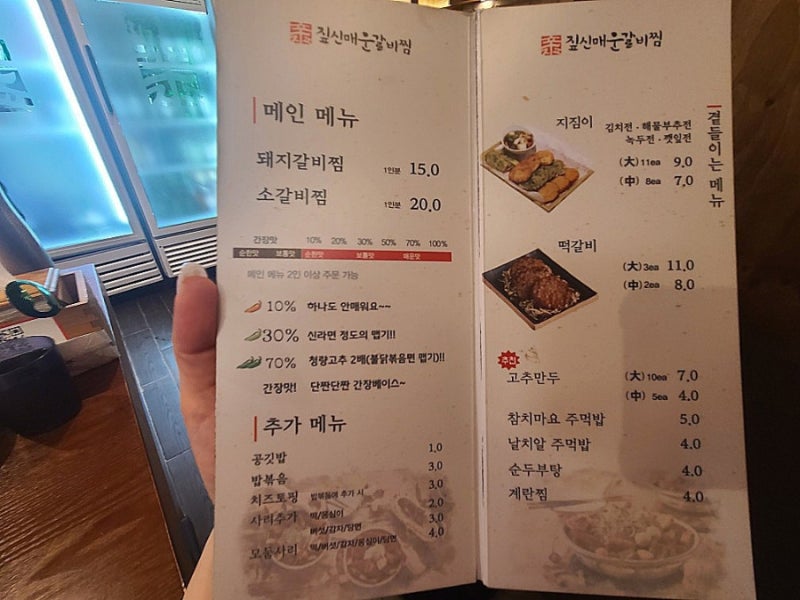 짚신매운갈비찜
메인 메뉴
돼지갈비찜 1인분 15.0
소갈비찜 1인분 20.0
간장맛 10% 20% 30% 50% 70% 100%
순한맛 보통맛 순한맛 보통맛 매운맛
메인 메뉴 2인 이상 주문 가능
10% 하나도 안매워요~~
30% 신라면 정도의 맵기!!
70% 청량고추 2배(불닭볶음면 맵기)!!
간장맛! 단짠단짠 간장베이스~
추가 메뉴
공깃밥 1.0
밥볶음 3.0
치즈토핑 밥볶음에 추가 시 3.0
사리추가 떡/옹심이 2.0
버섯/감자/당면 3.0
모둠사리 떡/버섯/감자/옹심이/당면 4.0
짚신매운갈비찜
곁들이는 메뉴
지짐이 김치전 · 해물부추전
녹두전 · 깻잎전
(大) 11ea 9.0
(中) 8ea 7.0
떡갈비
(大) 3ea 11.0
(中) 2ea 8.0
추천
고추만두 (大) 10ea 7.0
(中) 5ea 4.0
참치마요 주먹밥 5.0
날치알 주먹밥 4.0
순두부탕 4.0
계란찜 4.0